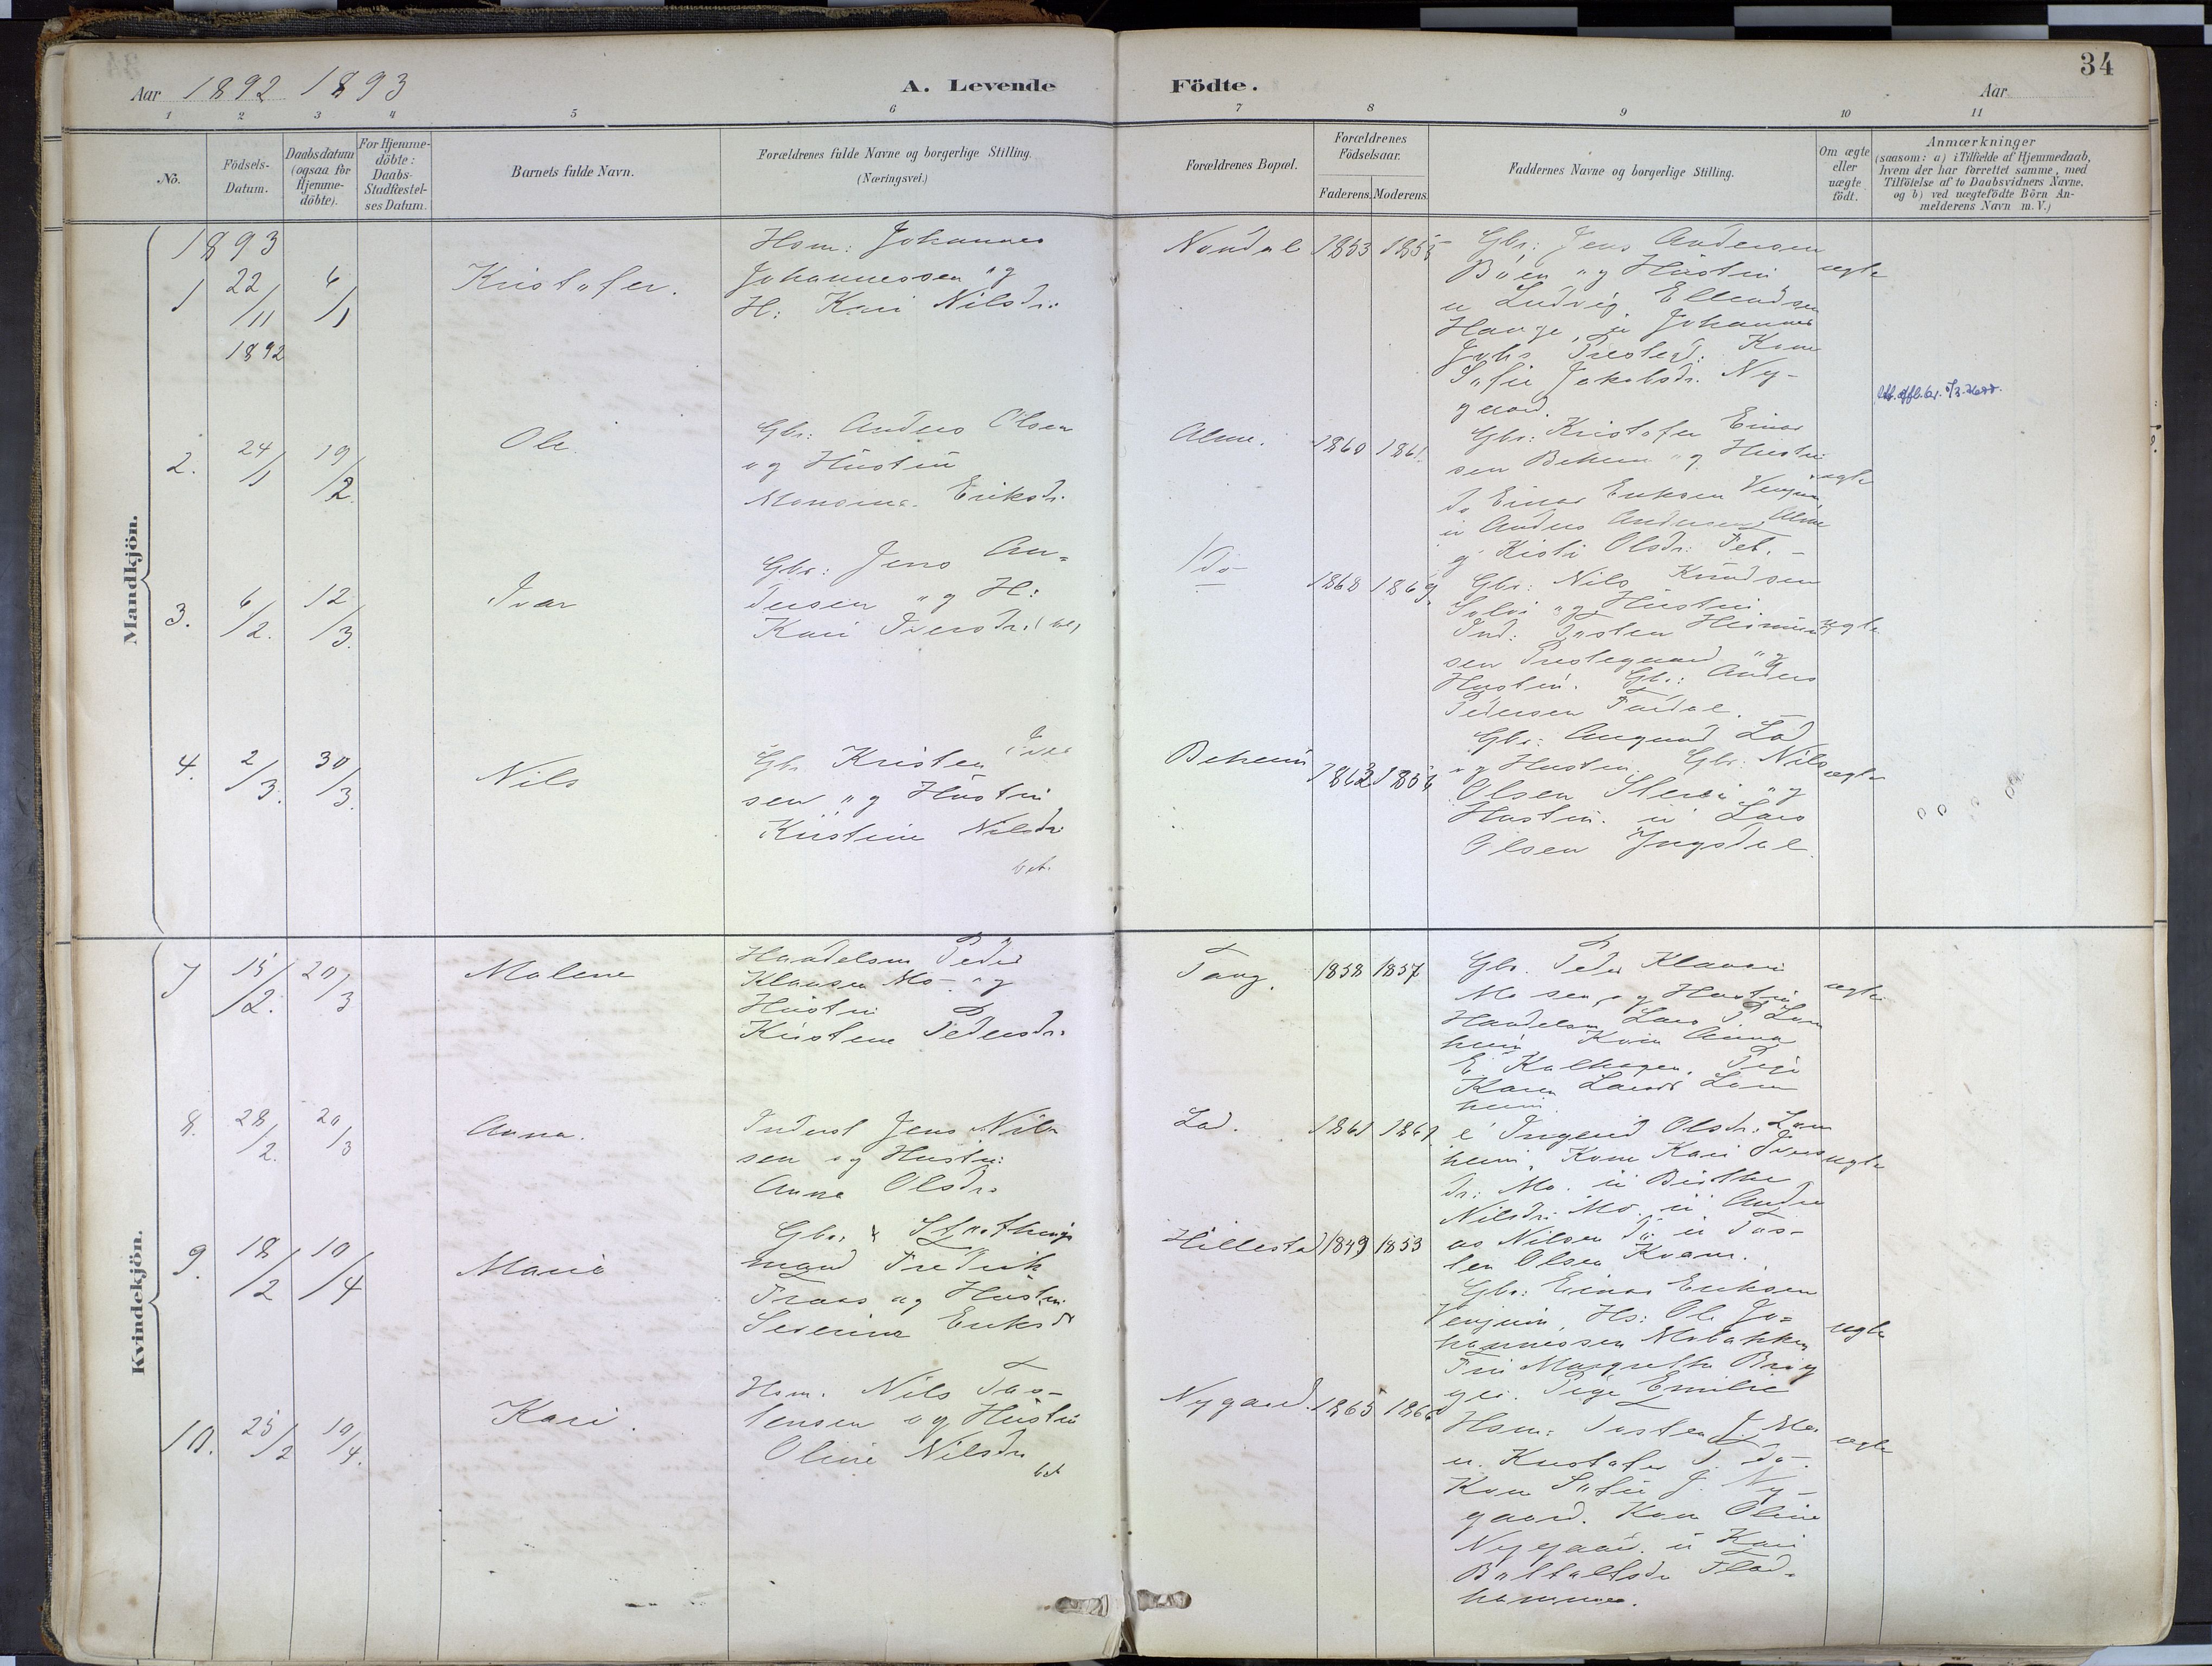 34
Aar 1892 1893
A. Levende Födte.
Aar
1 2 3 4 5 6 7 8 9 10 11
No.
Födsels-Datum.
Daabsdatum (ogsaa for Hjemme-döbte).
For Hjemme-döbte: Daabs-Stadfæstel-ses Datum.
Barnets fulde Navn.
Forældrenes fulde Navne og borgerlige Stilling.
(Næringsvei.)
Forældrenes Bopæl.
Forældrenes Födselsaar.
Faderens. Moderens.
Faddernes Navne og borgerlige Stilling.
Om ægte eller uægte födt.
Anmærkninger
(saasom: a) i Tilfælde af Hjemmedaab,
hvem der har forrettet samme, med
Tilföielse af to Daabsvidners Navne,
og b) ved uægtefödte Börn An-
melderens Navn m. V.)
Mandkjön.
1893
1 22/11 1892 6/1
Kristofer.
Hsm: Johannes
Johannessen og
H: Kari Nilsdr:
Nondal 1853 1855
Gbr: Jens Andersen
Böen og Hustru
u Ludvig Ellendsen
Hauge, u Johannes
Johs Prestegd: Kone
Sofie Jakobsdr. Ny-
gaard.
ægte
2. 24/1 19/2.
Ole
Gbr: Anders Olsen
og Hustru
Eriksdr.
Alme. 1860 1861.
Gbr: Kristofer Einar
sen Beheim og Hustru
do Einar Eriksen Venjum
u Anders Andersen, Alme
g Kisti Olsdr: Fet. -
ægte
3. 6/2. 12/3.
Ivar
Gbr: Jens An=
dersen og H:
Kari Iversdr.
do 1868 1869.
Gbr: Nils Knudsen
Solvi og Hustru.
Ind: Tosten
sen Prestegaard og
Hustru. Gbr: Anders
Pedersen Tardal.
ægte
4. 2/3. 30/3.
Nils
Gbr Kristen Iver
sen og Hustru
Kristine Nilsdr.
Beheim 1862 1856
Gbr: Angund Lad
og Hustru Gbr: Nils
Olsen og
Hustru. u Lars
Olsen Yngsdal.
ægte
Kvindekjön.
7 15/2. 20/3
Malene
Handelsm Peder
Klausen Mo og
Hustru
Kristene Pedersdr.
Tang. 1858 1857
Gbr. Peder Klausen
Mo sen, og Hustru
Handelsm Lars P. Lom
heim, Kone Anna
E Kalhagen. Pige
Karen Larsdr Lom
heim.
ægte
8. 28/2. 20/3
Anna.
Inderst Jens Nil
sen og Hustru:
Anna Olsdr.
Lad. 1861 1867
e Ingerid Olsdr: Lom
heim, Kone Kari Ivers
dr: Mo. u Birthe
Nilsdr. Mo. u Andre
as Nilsen do. u Tos-
ten Olsen Kvam.
ægte
9. 18/2 10/4
Marie
Gbr. & Storthings
mand Fredrik
og Hustru
Severine Eriksdr
Hillestad 1849 1853
Gbr: Einar Eriksen
Venjum, Hs: Ole Jo=
hannessen Mobakken
Fru Margrethe Brüg
ger. Pige Emilie
ægte
10. 25/2 10/4.
Kari.
Hsm. Nils Tos-
tensen og Hustru
Oline Nilsdr
Nygaard. 1865 1866
Hsm: Tosten J. Mo
u. Kristofer T. do.
Kone Sofie J. Ny-
gaard. Kone Oline
Nygaard. u Kari
Botolfsdr Flad-
hammer.
ægte